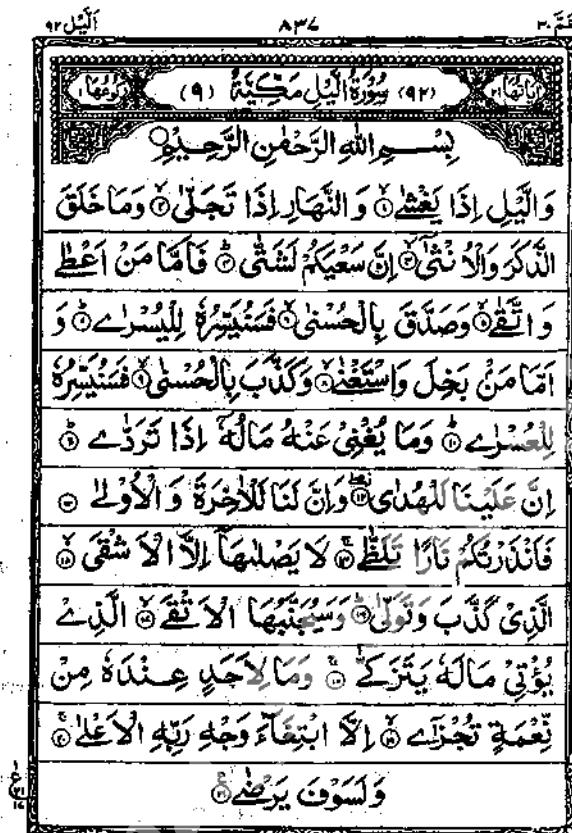 عَمَّ ٣٠ ٨٣٧ اَلَّيْل ٩٢
اٰيَاتُهَا ٢١ (٩٢) سُوْرَةُ الَّيْلِ مَكِّيَّةٌ (٩) رُكُوْعُهَا ١
بِسْمِ اللّٰهِ الرَّحْمٰنِ الرَّحِيْمِ
وَالَّيْلِ اِذَا يَغْشٰے ۙ۱ وَالنَّهَارِ اِذَا تَجَلّٰى ۙ۲ وَمَا خَلَقَ
الذَّكَرَ وَالْاُنْثٰٓى ۙ۳ اِنَّ سَعْيَكُمْ لَشَتّٰى ؕ۴ فَاَمَّا مَنْ اَعْطٰے
وَاتَّقٰے ۙ۵ وَصَدَّقَ بِالْحُسْنٰى ۙ۶ فَسَنُيَسِّرُهٗ لِلْيُسْرٰے ؕ۷ وَ
اَمَّا مَنْۢ بَخِلَ وَاسْتَغْنٰے ۙ۸ وَكَذَّبَ بِالْحُسْنٰى ۙ۹ فَسَنُيَسِّرُهٗ
لِلْعُسْرٰے ؕ۱۰ وَمَا يُغْنِىْ عَنْهُ مَالُهٗٓ اِذَا تَرَدّٰے ؕ۱۱
اِنَّ عَلَيْنَا لَلْهُدٰى ۖ۱۲ وَاِنَّ لَنَا لَلْاٰخِرَةَ وَالْاُوْلٰى ۱۳
فَاَنْذَرْتُكُمْ نَارًا تَلَظّٰے ۚ۱۴ لَا يَصْلٰىهَآ اِلَّا الْاَشْقَى ۙ۱۵
الَّذِىْ كَذَّبَ وَتَوَلّٰى ؕ۱۶ وَسَيُجَنَّبُهَا الْاَتْقَے ۙ۱۷ الَّذِےْ
يُؤْتِىْ مَالَهٗ يَتَزَكّٰے ۚ۱۸ وَمَا لِاَحَدٍ عِنْدَهٗ مِنْ
نِّعْمَةٍ تُجْزٰٓے ۙ۱۹ اِلَّا ابْتِغَآءَ وَجْهِ رَبِّهِ الْاَعْلٰے ۚ۲۰
وَلَسَوْفَ يَرْضٰے ۲۱